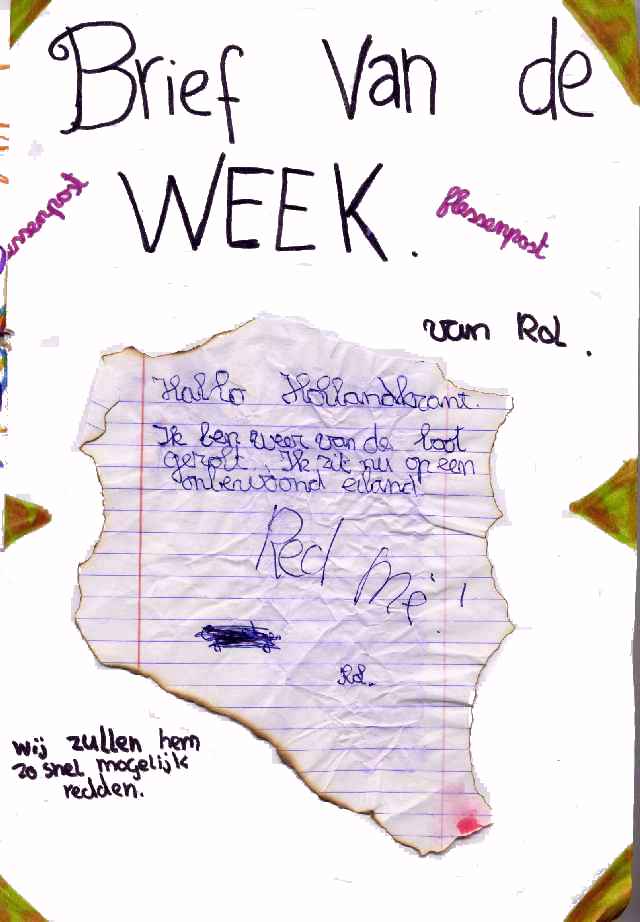 Brief van de
WEEK.
flessenpost
van Rol.
Hallo Hollandkrant.
Ik ben weer van de boot
gerold. Ik zit nu op een
onbewoond eiland!
Red Me!
Rol.
wij zullen hem
zo snel mogelijk
redden.